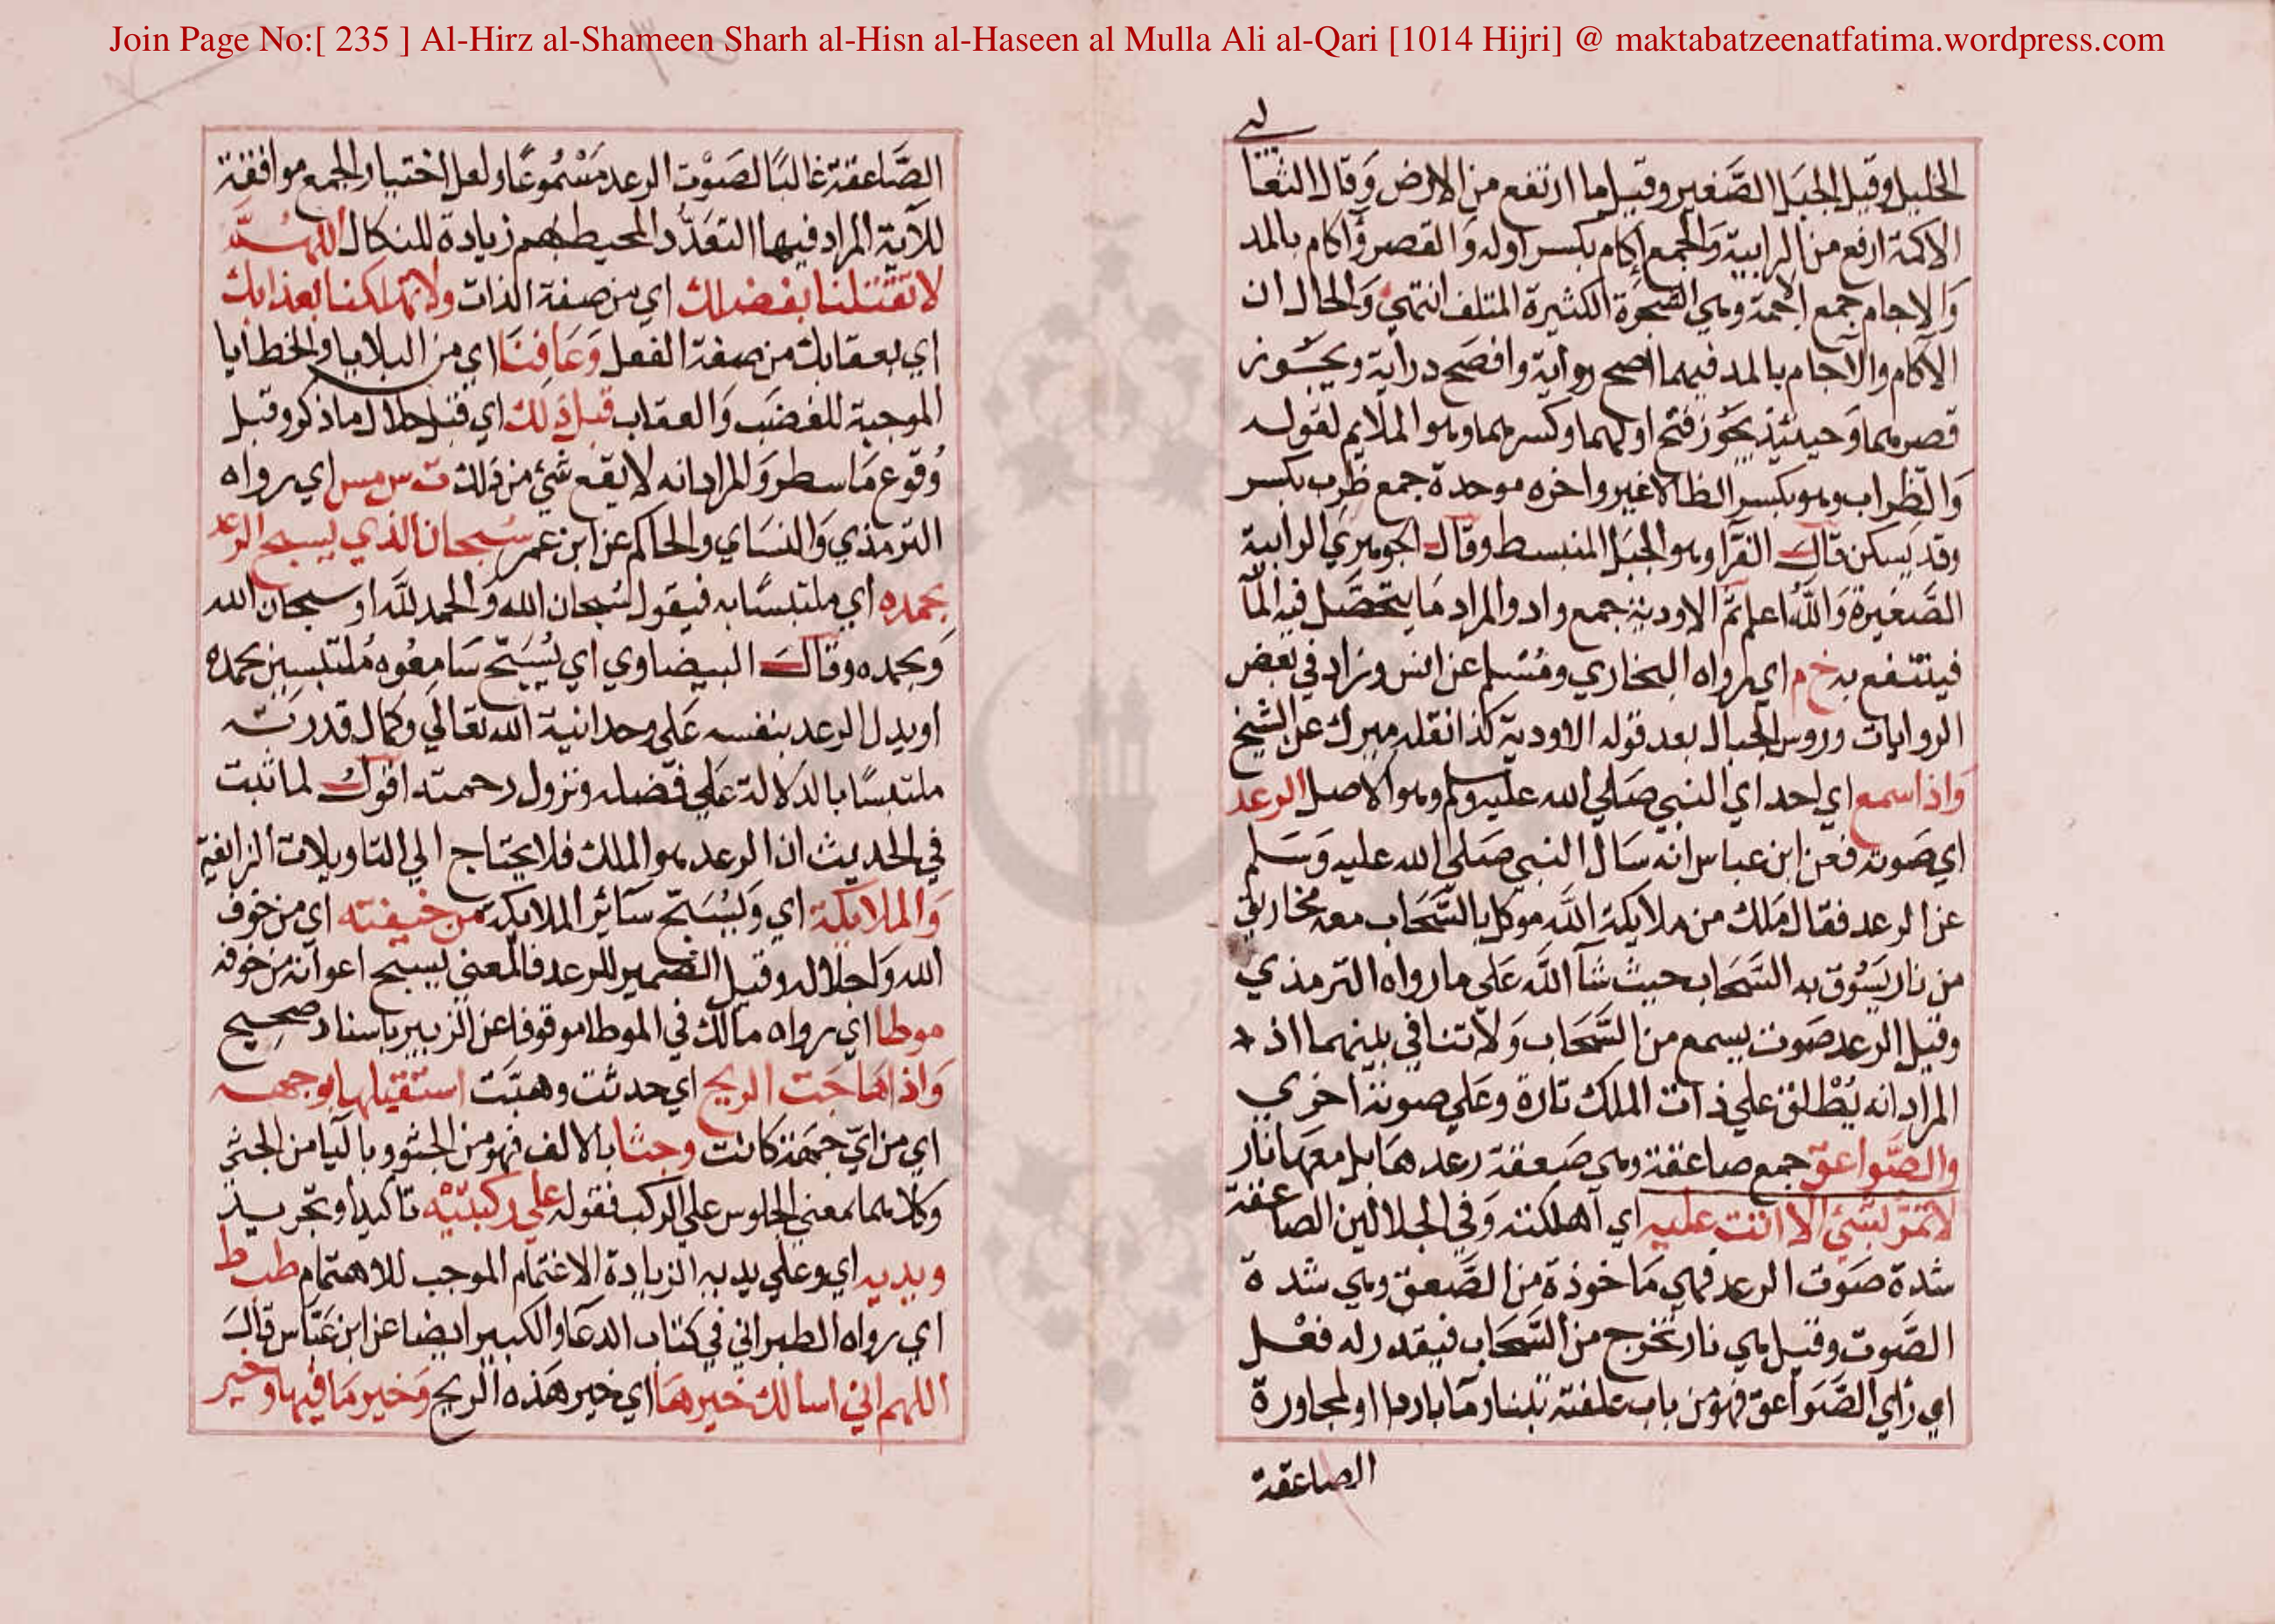 Join Page No:[ 235 ] Al-Hirz al-Shameen Sharh al-Hisn al-Haseen al Mulla Ali al-Qari [1014 Hijri] @ maktabatzeenatfatima.wordpress.com
الخليل وقيل الجبل الصغير وقيل ما ارتفع من الارض وقال الثعا
لبي
الاكمة ارفع من الرابية والجمع إكام بكسر اوله والقصر وآكام بالمد
والاجام جمع اجمة وهي الشجرة الكثيرة المتلف انتهي والحال ان
الآكام والآجام بالمد فيهما اصح رواية وافصح دراية ويجوز
قصرهما وحينئذ يجوز فتح اولهما وكسرهما وهو الملايم لقوله
والظراب وهو بكسر الظا لاغير واخره موحدة جمع ظرب بكسر
وقد يسكن قال الفرا وهو الجبل المنبسط وقال الجوهري الرابية
الصغيرة والله اعلم ثم الاودية جمع واد والمراد ما يتحصل فيه المآ
فينتفع به خ م اي رواه البخاري ومسلم عن انس وزاد في بعض
الروايات وروس الجبال بعد قوله الاودية كذا نقله ميرك عن الشيخ
واذا سمع اي احد اي النبي صلي الله عليه وسلم وهو الاصل الرعد
اي صوته فعن ابن عباس انه سال النبي صلي الله عليه وسلم
عن الرعد فقال ملك من ملايكة الله موكل بالسحاب معه مخاريق
من نار يسوق به السحاب حيث شآ الله علي ما رواه الترمذي
وقيل الرعد صوت يسمع من السحاب ولا تنافي بينهما اذ
المراد انه يطلق علي ذات الملك تارة وعلي صوته اخري
والصواعق جمع صاعقة وهي صعقة رعد هابل معها نار
لا تمر بشئ الا اتت عليه اي اهلكته وفي الجلالين الصاعقة
شدة صوت الرعد فهي ماخوذة من الصعق وهي شدة
الصوت وقيل هي نار تخرج من السحاب فيقدر له فعل
اي رأي الصواعق فهو من باب علفته تبنا ومآ باردا او لمجاورة
الصاعقة
الصاعقة غالبًا لصوت الرعد مسموعًا ولعل اختيار الجمع موافقة
للآية المراد فيها التعدد المحيط بهم زيادة للنكال اللهم
لا تقتلنا بغضبك اي من صفة الذات ولا تهلكنا بعذابك
اي بعقابك من صفة الفعل وعافنا اي من البلايا والخطايا
الموجبة للغضب والعقاب قبل ذلك اي قبل حلال ما ذكر وقبل
وقوع ما سطر والمراد انه لا يقع شئ من ذلك ت س مس اي رواه
الترمذي والنساي والحاكم عن ابن عمر سبحان الذي يسبح الرعد
بحمده اي ملتبسًا به فيقول سبحان الله والحمد لله او سبحان الله
وبحمده وقال البيضاوي اي يسبح سامعوه ملتبسين بحمده
او يدل الرعد بنفسه علي وحدانية الله تعالي وكمال قدرته
ملتبسًا بالدلالة علي فضله ونزول رحمته اقول لما ثبت
في الحديث ان الرعد هو الملك فلا يحتاج الي التاويلات الزايفة
والملايكة اي ويسبح سآئر الملايكة من خيفته اي من خوف
الله واجلاله وقيل الضمير للرعد فالمعني يسبح اعوانه من خوفه
موطا اي رواه مالك في الموطا موقوفا عن الزبير باسناد صحيح
واذا هاجت الريح اي حدثت وهبت استقبلها بوجهه
اي من اي جهة كانت وجثا بالالف فهو من الجثو وباليا من الجثي
وكلاهما بمعني الجلوس علي الركب فقوله علي ركبتيه تاكيد او تجريد
ويديه اي وعلي يديه الزيادة الاغتمام الموجب للاهتمام طب ط
اي رواه الطبراني في كتاب الدعآ والكبير ايضا عن ابن عباس قال
اللهم اني اسالك خيرها اي خير هذه الريح وخير ما فيها وخير